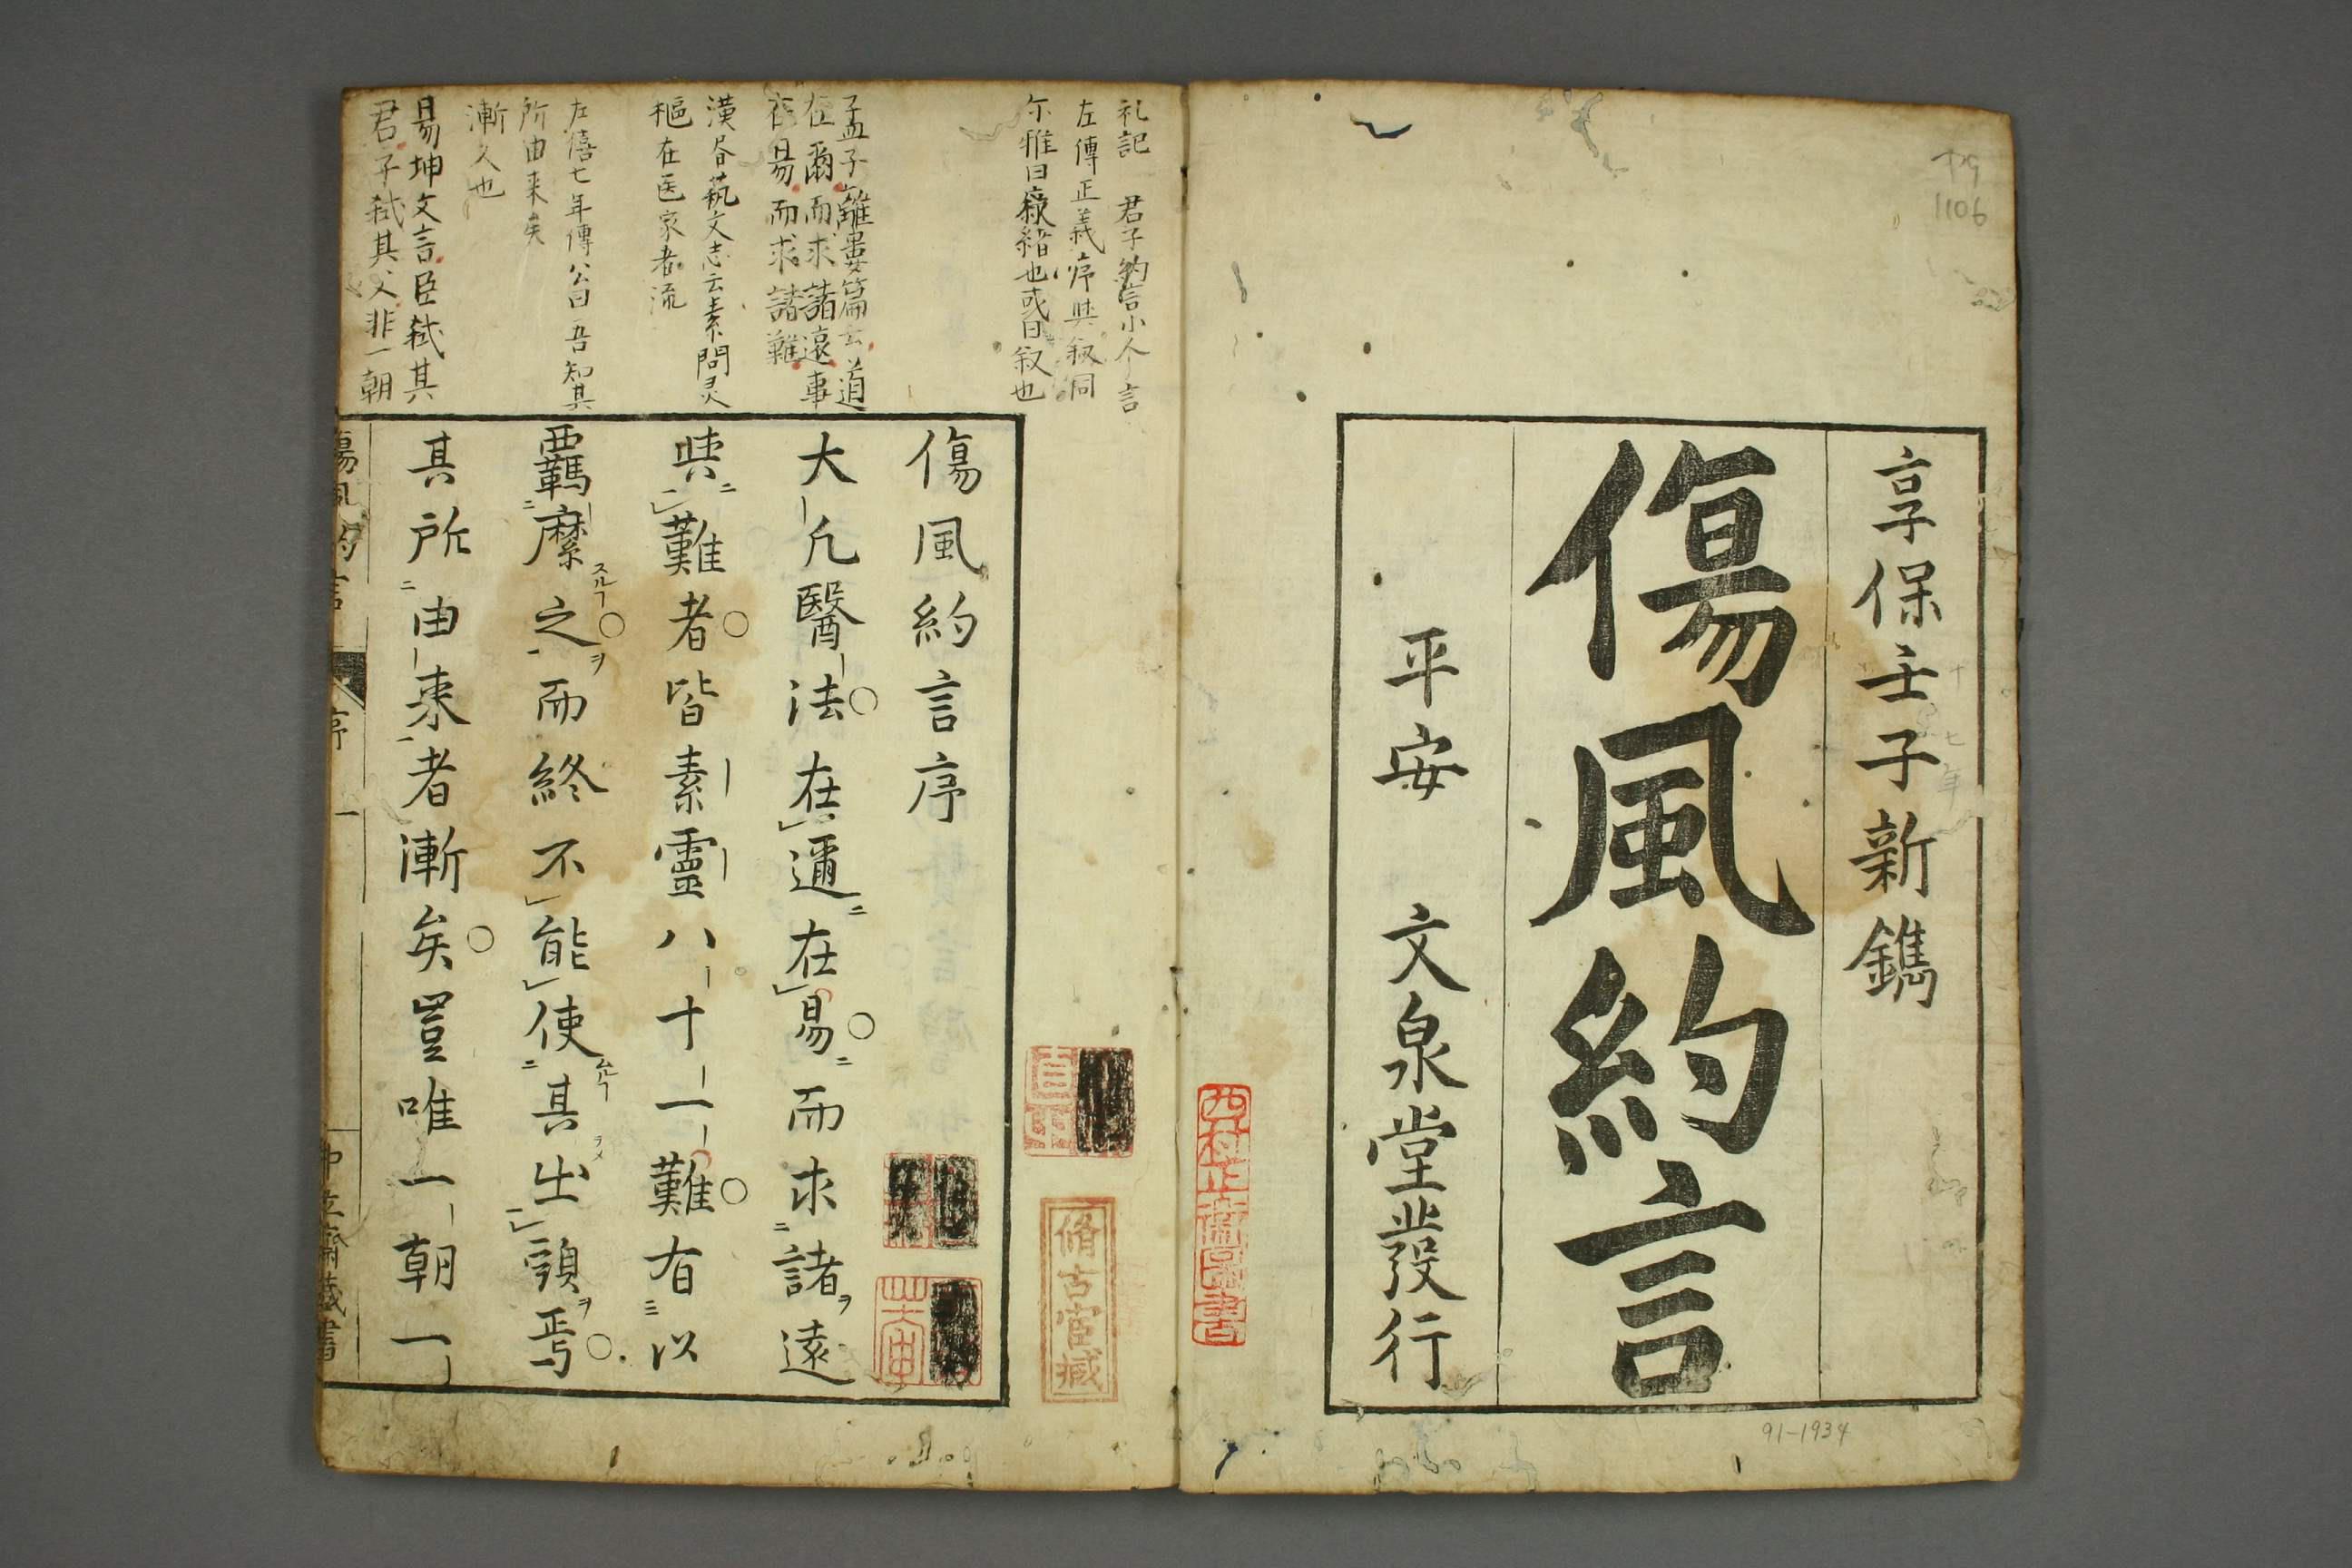 享保壬子新鐫
傷風約言
平安 文泉堂發行
十七年
1106
91-1934
礼記 君子約言小人言
左傳正義序與叙同
尓雅曰叙緒也或曰叙也
孟子離婁篇云道
在爾而求諸遠事
在易而求諸難
漢書藝文志云素問灵
樞在医家者流
左僖七年傳公曰吾知其
所由来矣
漸久也
易坤文言臣弑其
君子弑其父非一朝
脩古堂臧
傷風約言序
大凡醫法在邇在易而求諸遠
與難者皆素靈八十一難有以
羈縻之而終不能使其出頭焉
其所由来者漸矣豈唯一朝一
傷風約言 序 一 中立齋藏書